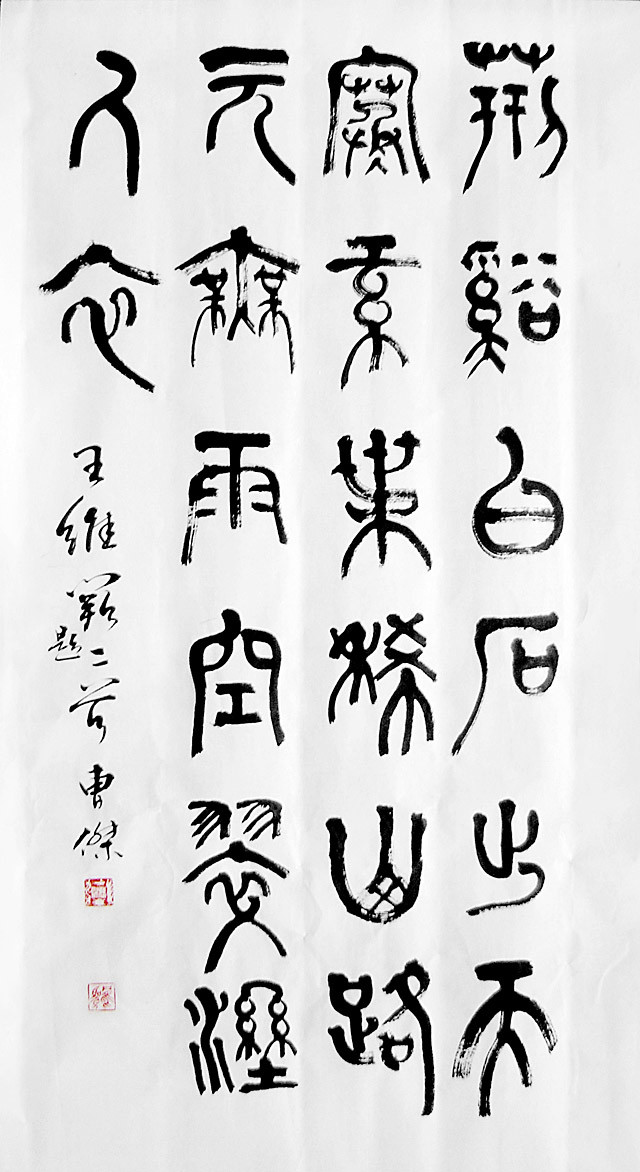 荊谿白石出天
寒紅葉稀山路
元無雨空翠溼
人衣
王維闕題二首 曹傑